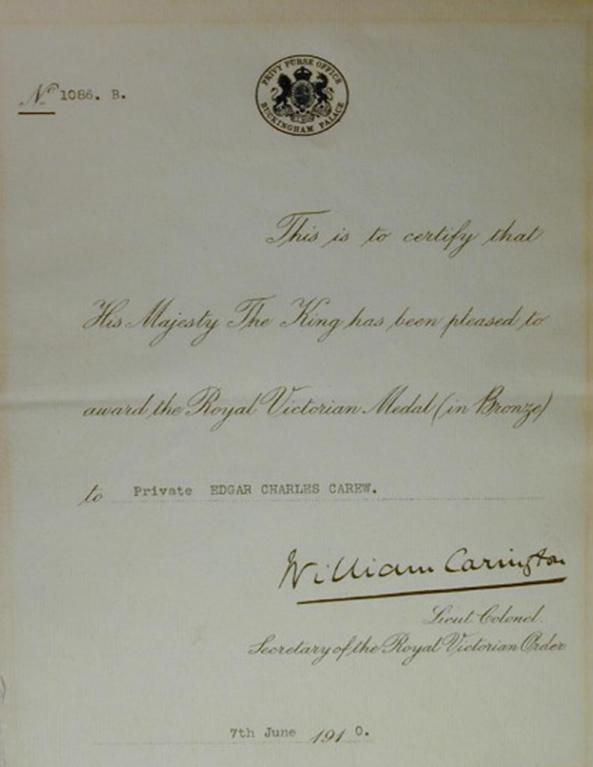 PRIVY PURSE OFFICE
BUCKINGHAM PALACE
No 1086. B.
This is to certify that
His Majesty The King has been pleased to
award the Royal Victorian Medal (in Bronze)
to Private EDGAR CHARLES CAREW.
William Carington
Lieut. Colonel.
Secretary of the Royal Victorian Order
7th June 1910.